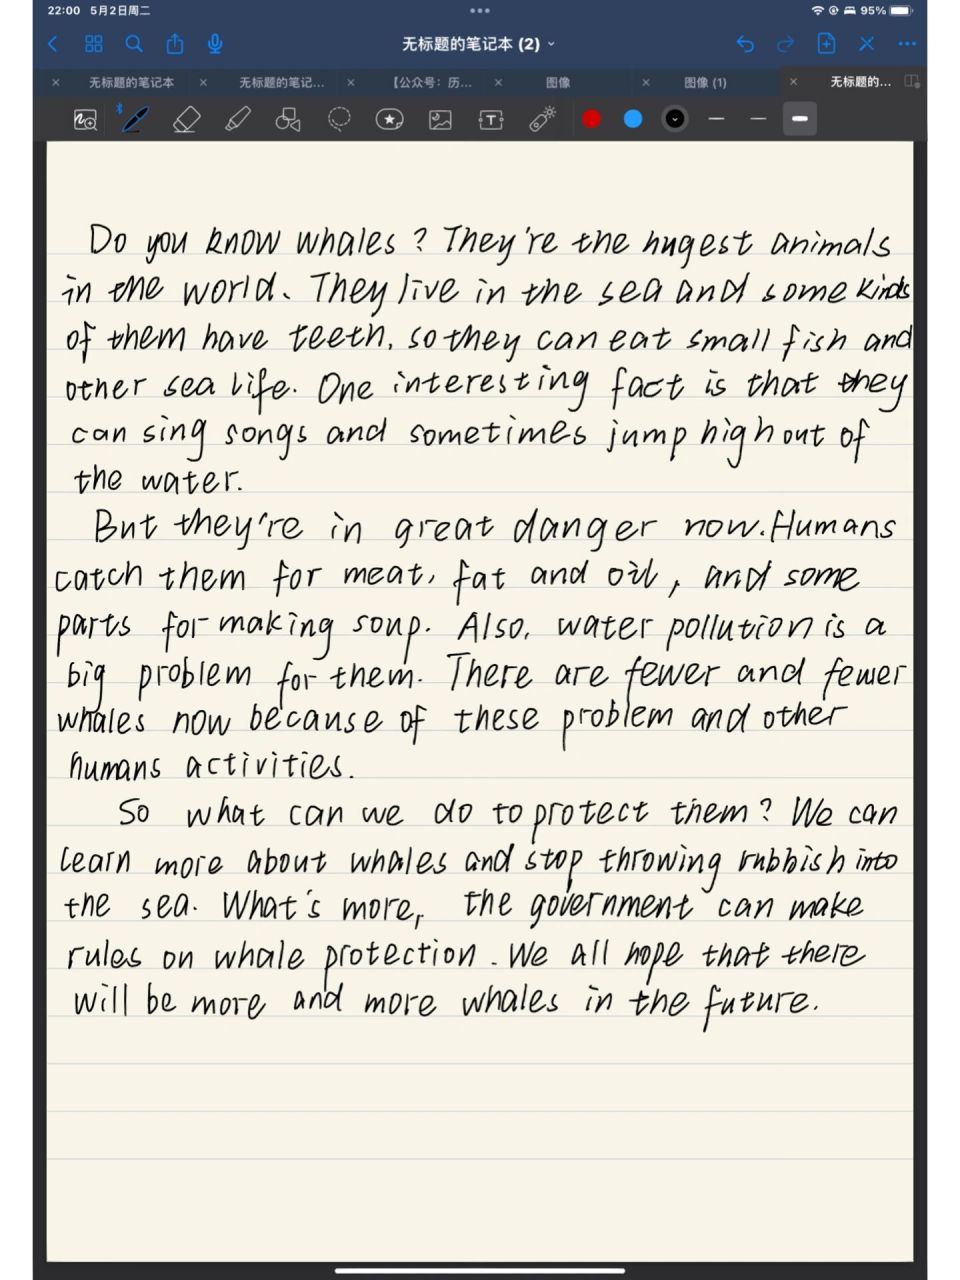 22:00 5月2日周二
95%
无标题的笔记本 (2)
无标题的笔记本
无标题的笔记...
【公众号：历...
图像
图像 (1)
无标题的...
Do you know whales? They're the hugest animals
in the world. They live in the sea and some kinds
of them have teeth, so they can eat small fish and
other sea life. One interesting fact is that they
can sing songs and sometimes jump high out of
the water.
But they're in great danger now. Humans
catch them for meat, fat and oil, and some
parts for making soup. Also, water pollution is a
big problem for them. There are fewer and fewer
whales now because of these problem and other
humans activities.
So what can we do to protect them? We can
learn more about whales and stop throwing rubbish into
the sea. What's more, the government can make
rules on whale protection. We all hope that there
will be more and more whales in the future.